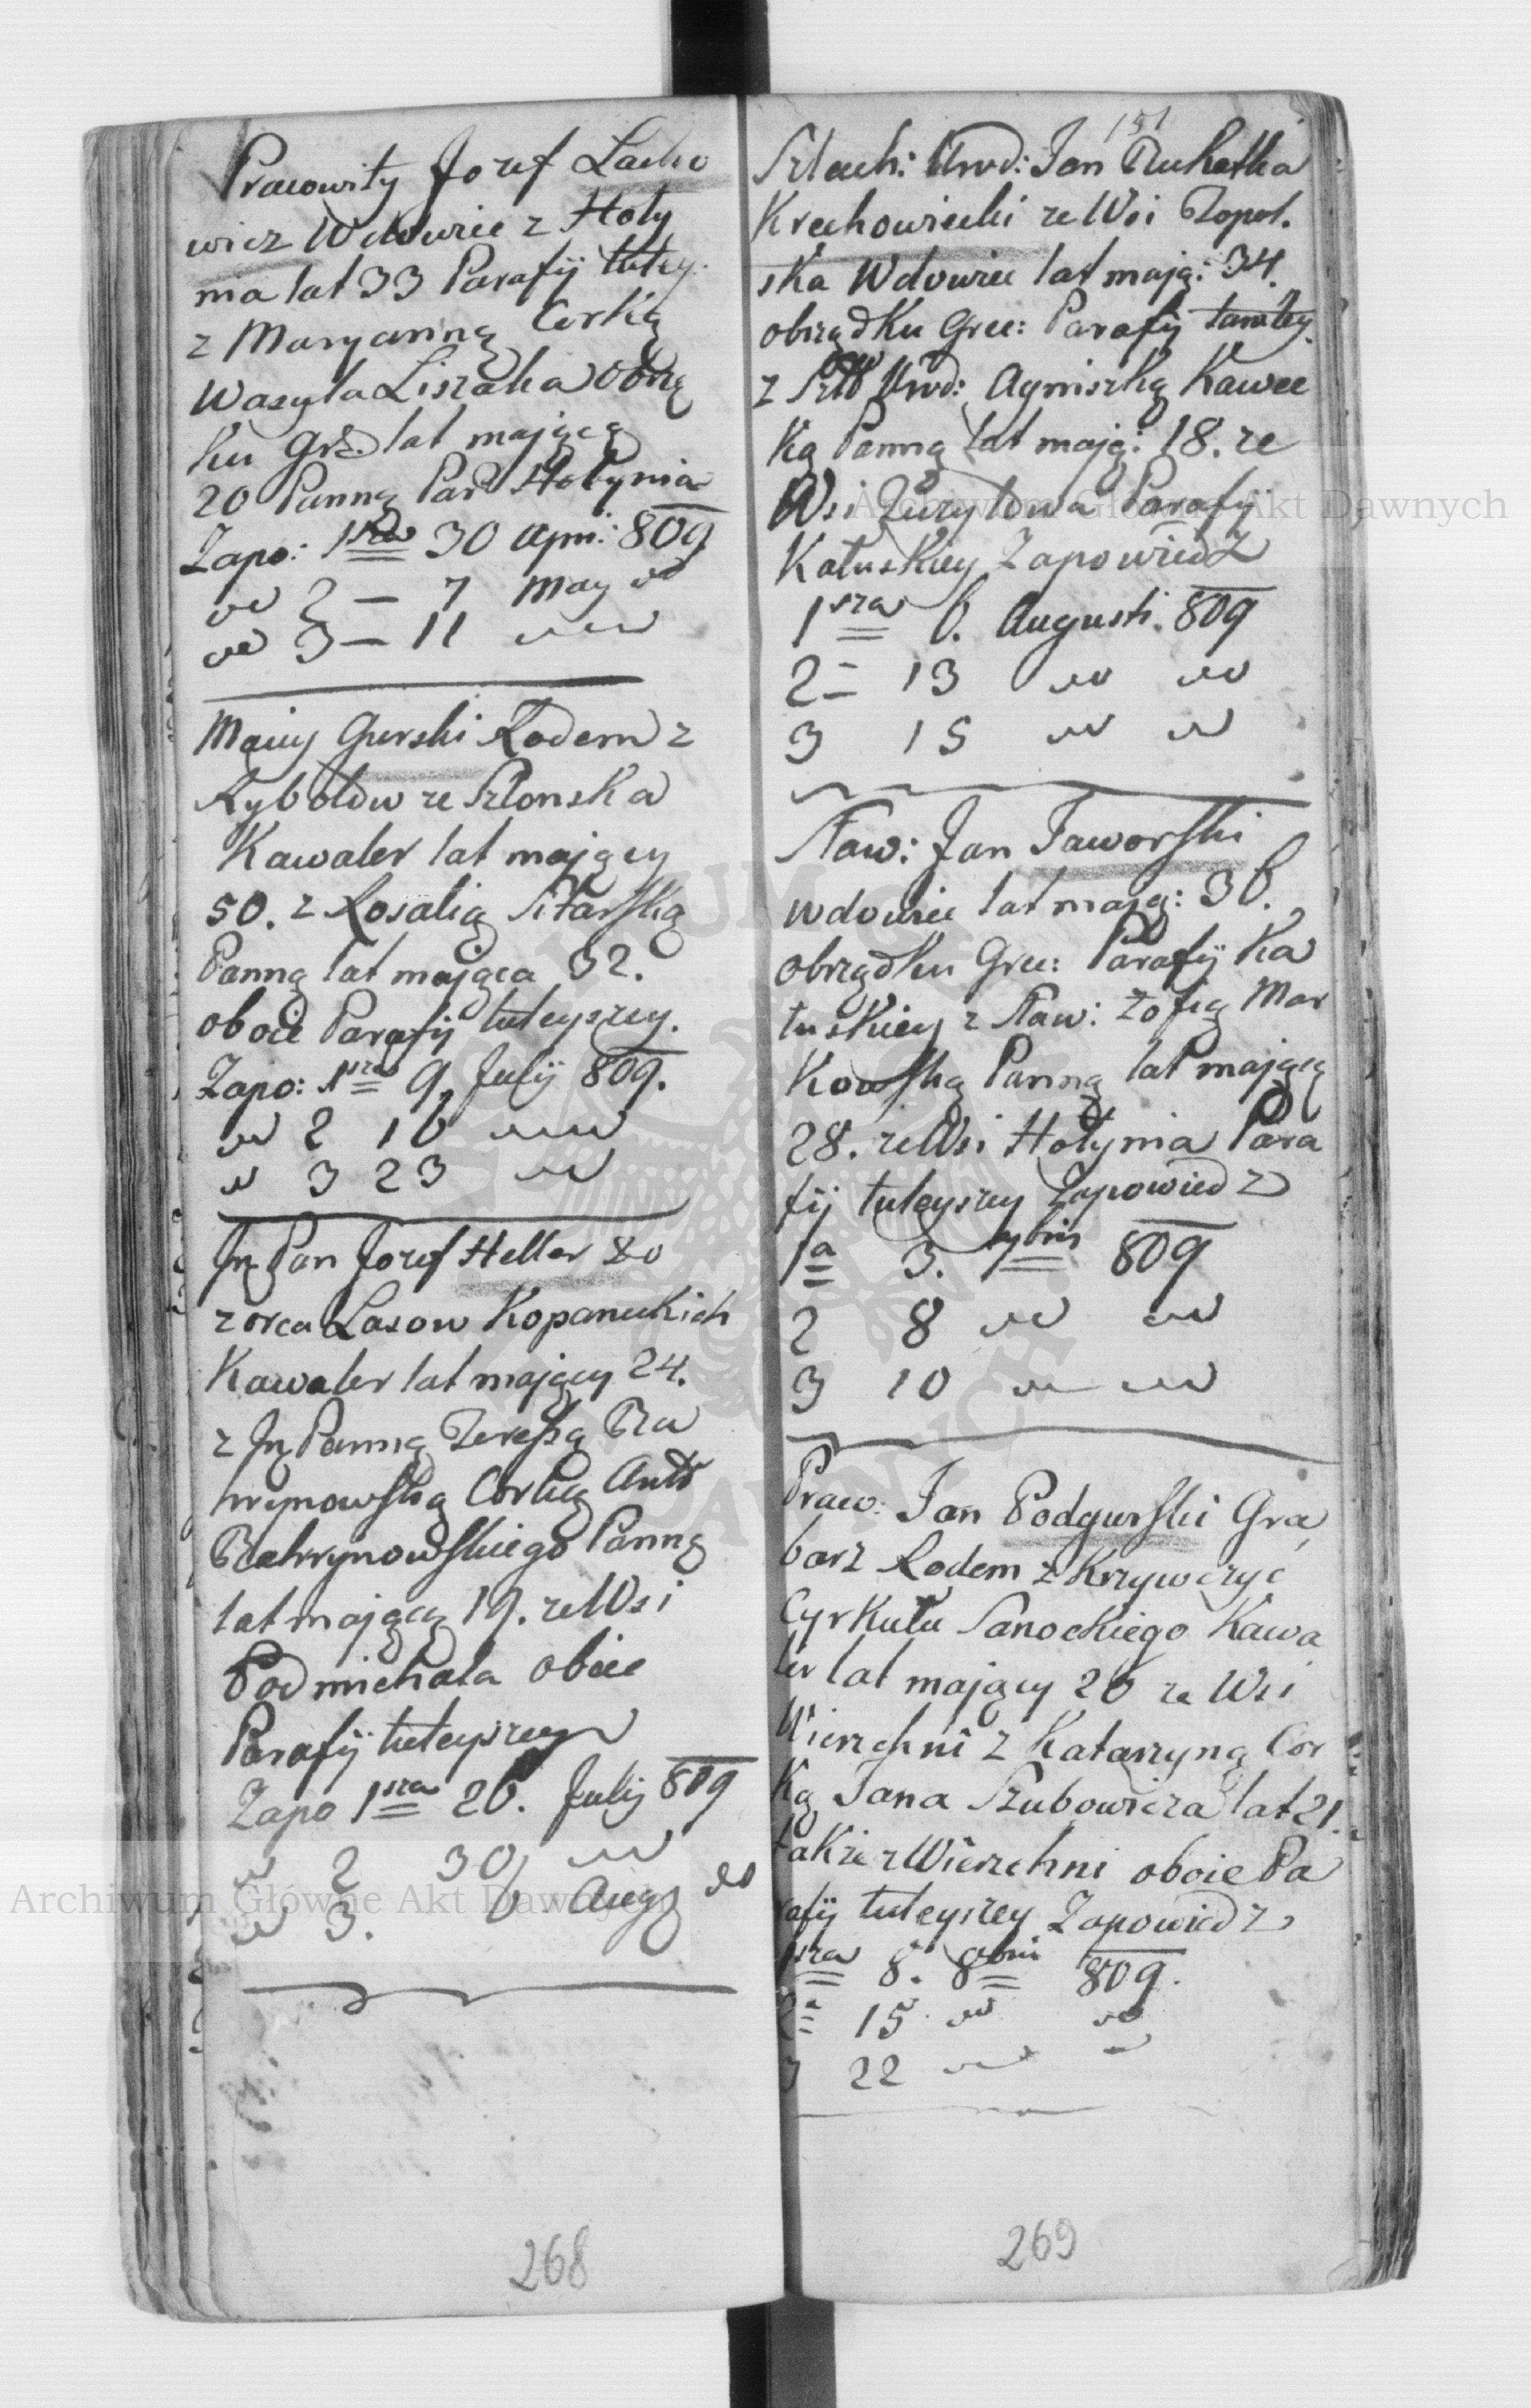 Pracowity Jozef Lacho
wicz Wdowiec z Hoły
nia lat 33 Parafij tutey:
z Maryanną Corką
Wasyla Liszaka obrzą
ku Gre: lat mającą
20 Panną Par Hołynia
Zapo: 1sza 30 Apri: 809
2 — 7 May
3 — 11
Gurski Rodem z
Kawaler lat mający
50. z Rosalią Sitarską
Panną lat mająca 32.
oboie Parafij tuteyszey.
Zapo: 1sza 9. Julij 809.
2 16
3 23
Jp Pan Jozef Heller do
zorca Lasow Kopaneckich
Kawaler lat mający 24.
z Jp Panną Teressą Ba
hrynowską Corką Anto
Bahrynowskiego Panną
lat mającą 19. ze Wsi
Podmichala oboie
Parafij tuteyszey
Zapo 1sza 26. Julij 809
2 30
3. 6 Aug
151
Szlach: Urod: Jan
Krechowiecki ze Wsi Topol.
ska Wdowiec lat mają: 34.
obrządku Grec: Parafij tamtey.
z Urod: Agniszką Kawec
ką Panną lat mają: 18. ze
Wsi Parafij
Kałuskiey Zapowiedz
1sza 6. Augusti. 809
2 13
3 15
Sław: Jan Jaworski
wdowiec lat mają: 36.
obrządku Grec: Parafij Ka
łuskiey z Sław: Zofią Mar
kowską Panną lat mającą
28. ze Wsi Hołynia Para
fij tuteyszey Zapowiedz
1a 3. 7bris 809
2 8
3 10
Prac: Jan Podgurski Gra
barz Rodem z Krzywczyc
Cyrkułu Sanockiego Kawa
ler lat mający 26 ze Wsi
Wierzchni z Katarzyną Cor
ką Jana Szubowicza lat 21.
także z Wierzchni oboie Pa
rafij tuteyszey Zapowiedz
1sza 8. 8bris 809.
2a 15
3 22
268
269
Archiwum Główne Akt Dawnych
Archiwum Główne Akt Dawnych